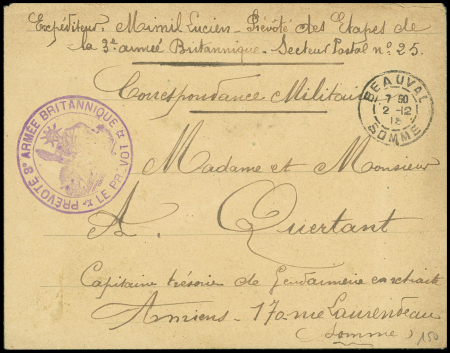 Expéditeur. Mimil Lucien - Prévôté des Etapes de
la 3e armée Britannique - Secteur Postal n° 25.
Correspondance Militaire
BEAUVAL
7 50
2 - 12
15
SOMME
PRÉVOTÉ 3e ARMÉE BRITANNIQUE
LE PRÉVOT
Madame et Monsieur
A. Quertant
Capitaine trésorier de Gendarmerie en retraite
Amiens - 17 rue Laurendeau
(Somme)
150